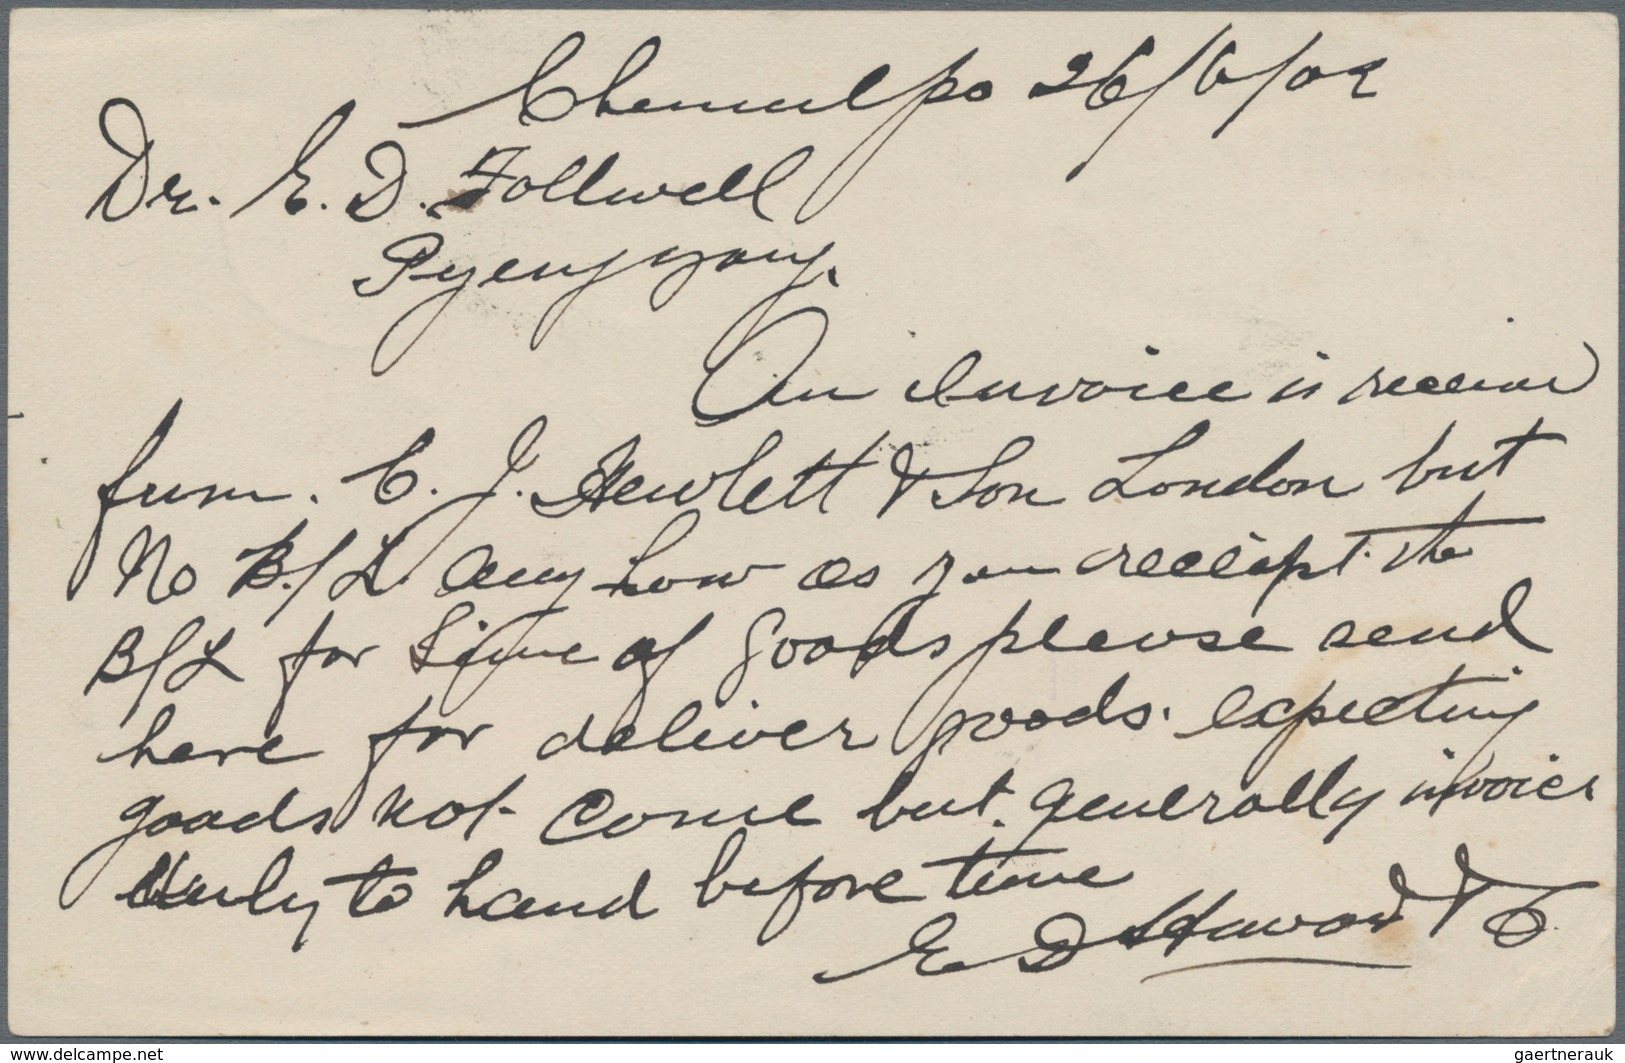 Chemulpo 26/6/02
Dr. E. D. Follwell
Pyengyang.
An invoice is receive
from. C. J. Hewlett & Son London but
No B/L any how as you receipt the
B/L for line of goods please send
here for deliver goods. expecting
goods not come but generally invoices
early to hand before time
E D & Co
www.delcampe.net
gaertnerauk